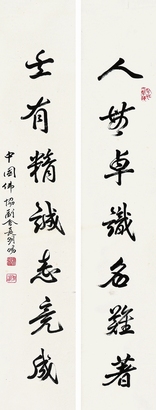 人無卓識名難著
士有精誠志竟成
中國佛協副会長明暘